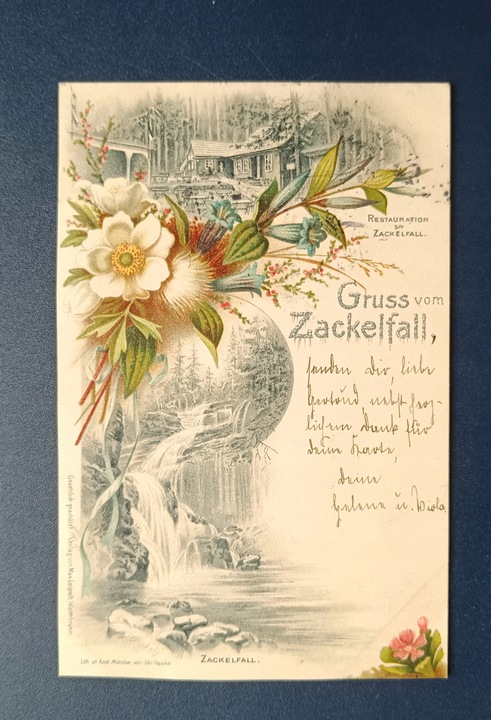 RESTAURATION
am
ZACKELFALL.
Gruss vom
Zackelfall,
senden dir, liebe
Gertrud, nebst herz-
lichem Dank für
deine Karte,
deine
Helene u.
Gesetzlich geschützt. Verlag von Max Leipelt, Warmbrunn.
ZACKELFALL.